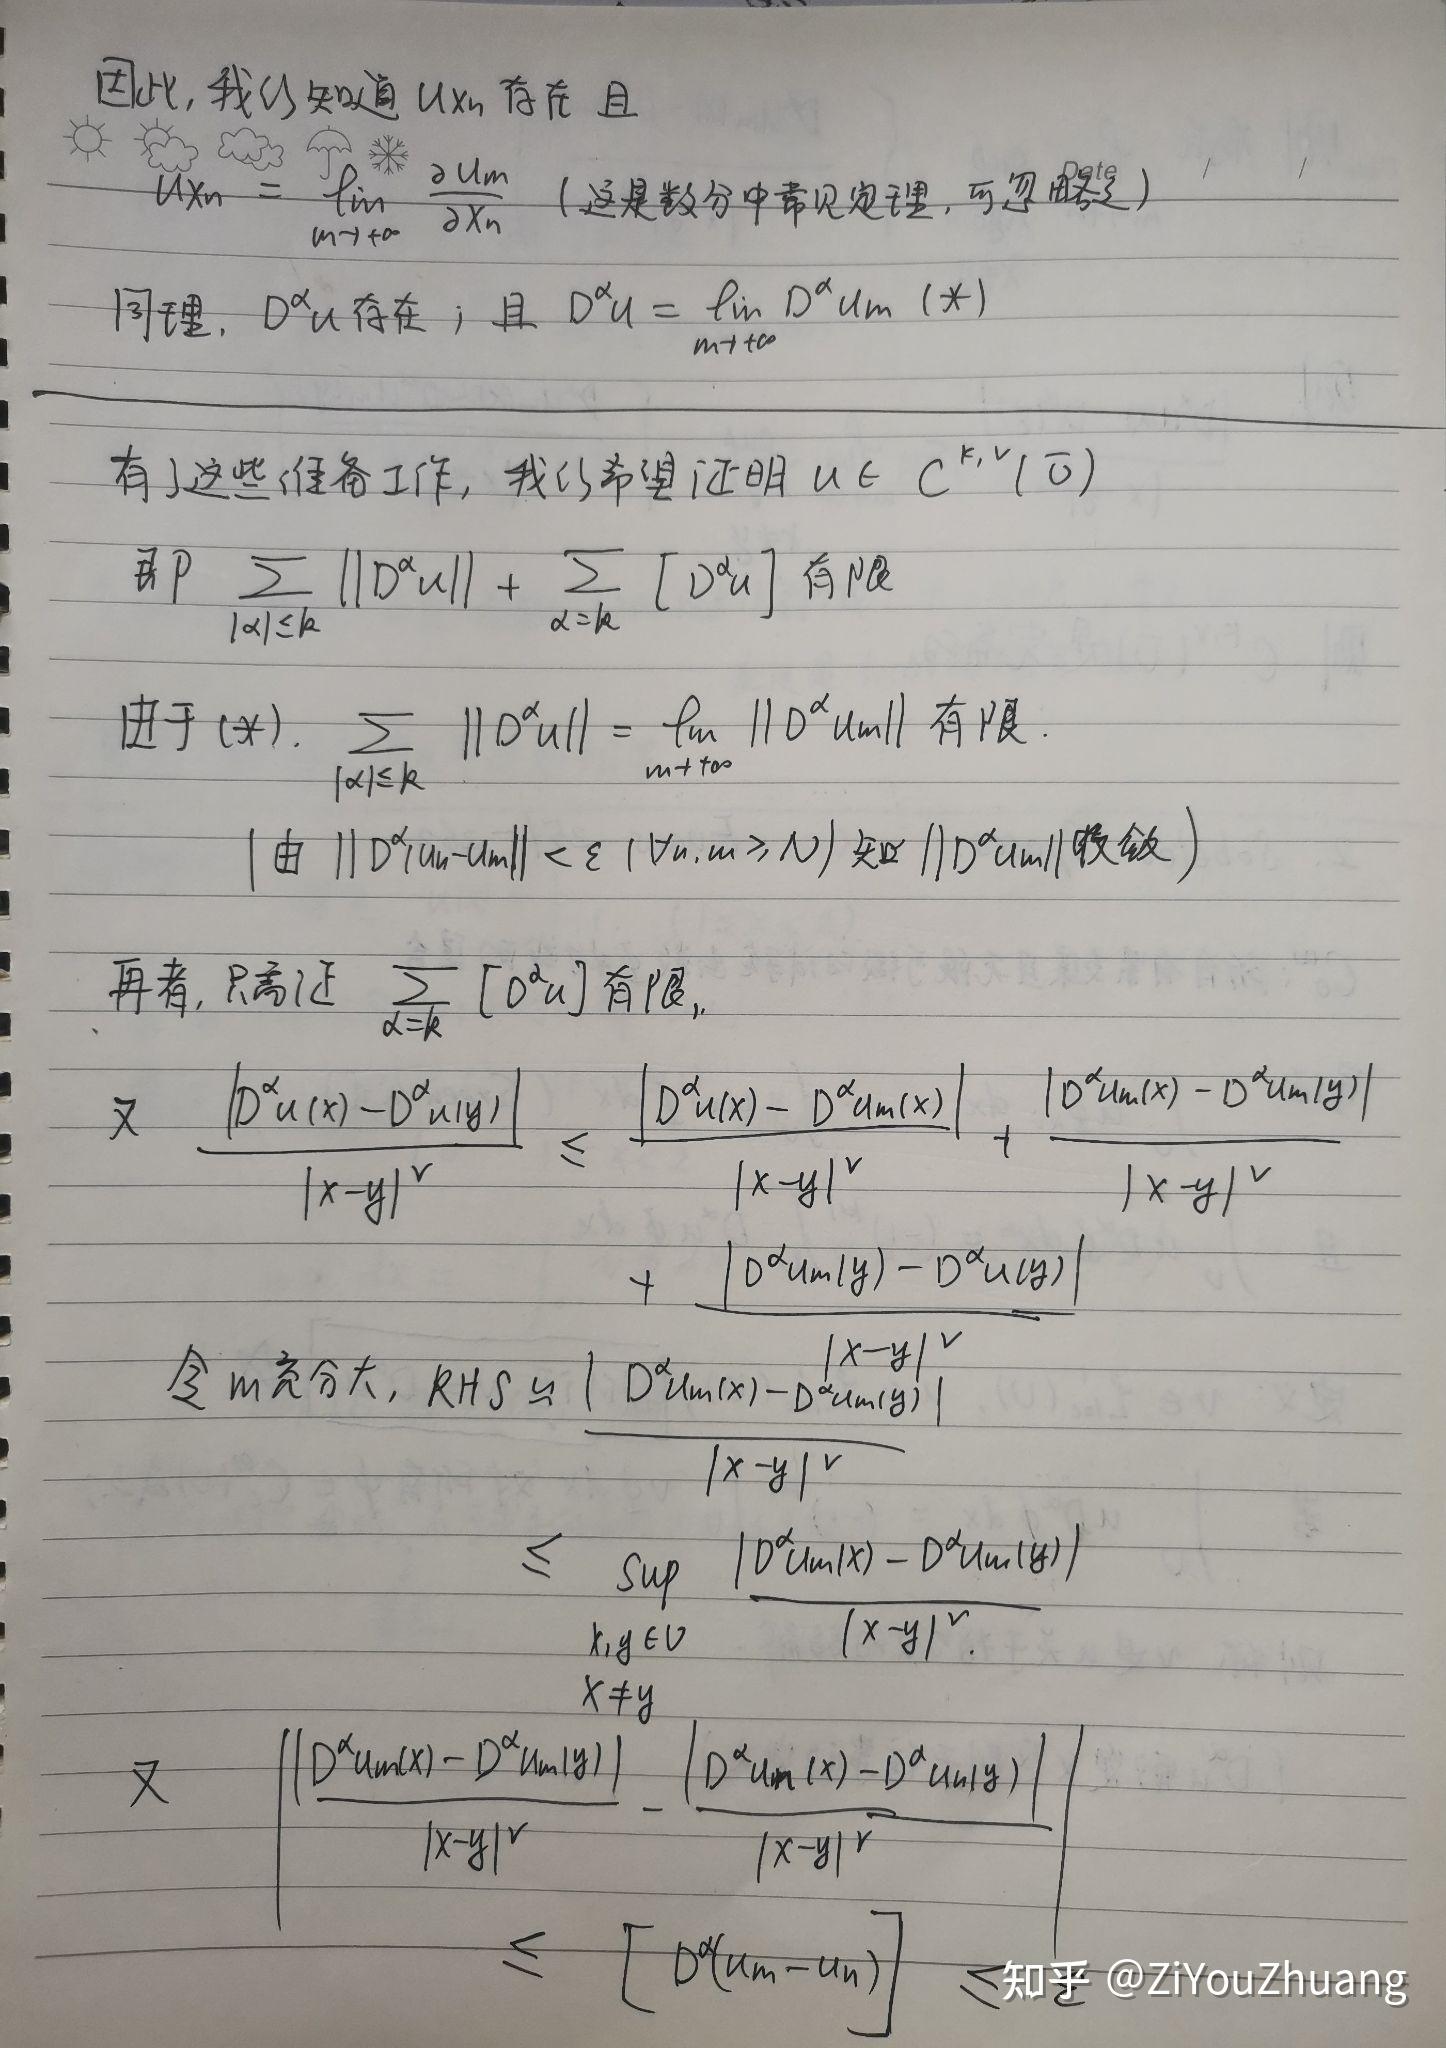 因此,我们知道 u_{x_n} 存在且
Date / /
u_{x_n} = lim_{m→+∞} ∂u_m/∂x_n (这是数分中常见定理,可忽略之)
同理, D^α u 存在; 且 D^α u = lim_{m→+∞} D^α u_m (*)
有了这些准备工作, 我们希望证明 u ∈ C^{k,γ}(Ū)
即 Σ_{|α|≤k} ||D^α u|| + Σ_{α=k} [D^α u] 有限
由于(*). Σ_{|α|≤k} ||D^α u|| = lim_{m→+∞} ||D^α u_m|| 有限.
(由 ||D^α(u_n-u_m)|| < ε (∀n,m ≥ N) 知 ||D^α u_m|| 收敛)
再者, 只需证 Σ_{α=k} [D^α u] 有限,
又 |D^α u(x) - D^α u(y)| / |x-y|^γ ≤ |D^α u(x) - D^α u_m(x)| / |x-y|^γ + |D^α u_m(x) - D^α u_m(y)| / |x-y|^γ
+ |D^α u_m(y) - D^α u(y)| / |x-y|^γ
令m充分大, RHS ≤ |D^α u_m(x) - D^α u_m(y)| / |x-y|^γ
≤ sup_{x,y∈U x≠y} |D^α u_m(x) - D^α u_m(y)| / |x-y|^γ.
又 | |D^α u_m(x) - D^α u_m(y)| / |x-y|^γ - |D^α u_n(x) - D^α u_n(y)| / |x-y|^γ |
≤ [D^α(u_m - u_n)] ≤ ε
知乎 @ZiYouZhuang